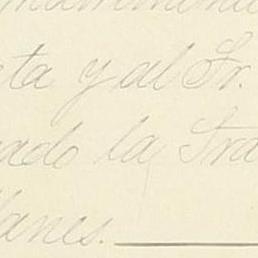 ta y al Sr.
ado la Tra
lanes.